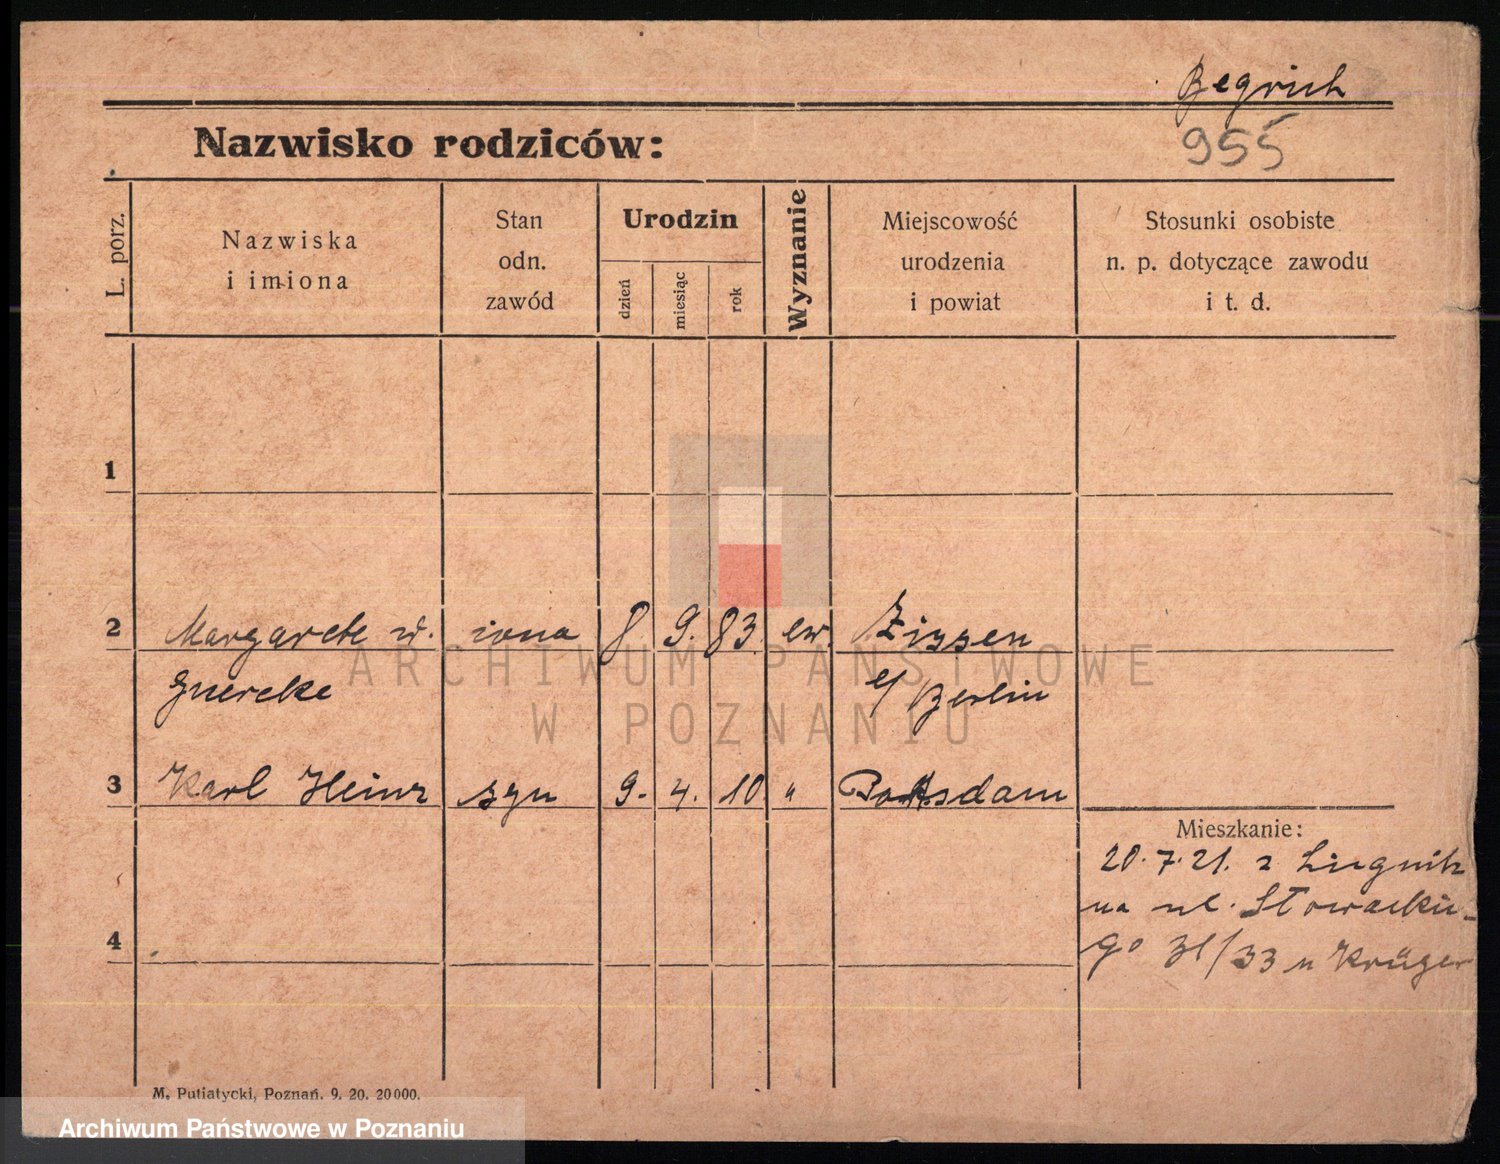 Begrich
Nazwisko rodziców:
955
L. porz.
Nazwiska
i imiona
Stan
odn.
zawód
Urodzin
dzień
miesiąc
rok
Wyznanie
Miejscowość
urodzenia
i powiat
Stosunki osobiste
n. p. dotyczące zawodu
i t. d.
1
2 Margarete żona 8. 9. 83. ew. Zissen
b/ Berlin
3 Karl Heinz syn 9. 4. 10 " Potsdam
Mieszkanie:
20.7.21. z Liegnitz
na ul. Słowackie-
go 31/33 u Krüger
4
M. Putiatycki, Poznań. 9. 20. 20000.
ARCHIWUM PAŃSTWOWE
W POZNANIU
Archiwum Państwowe w Poznaniu